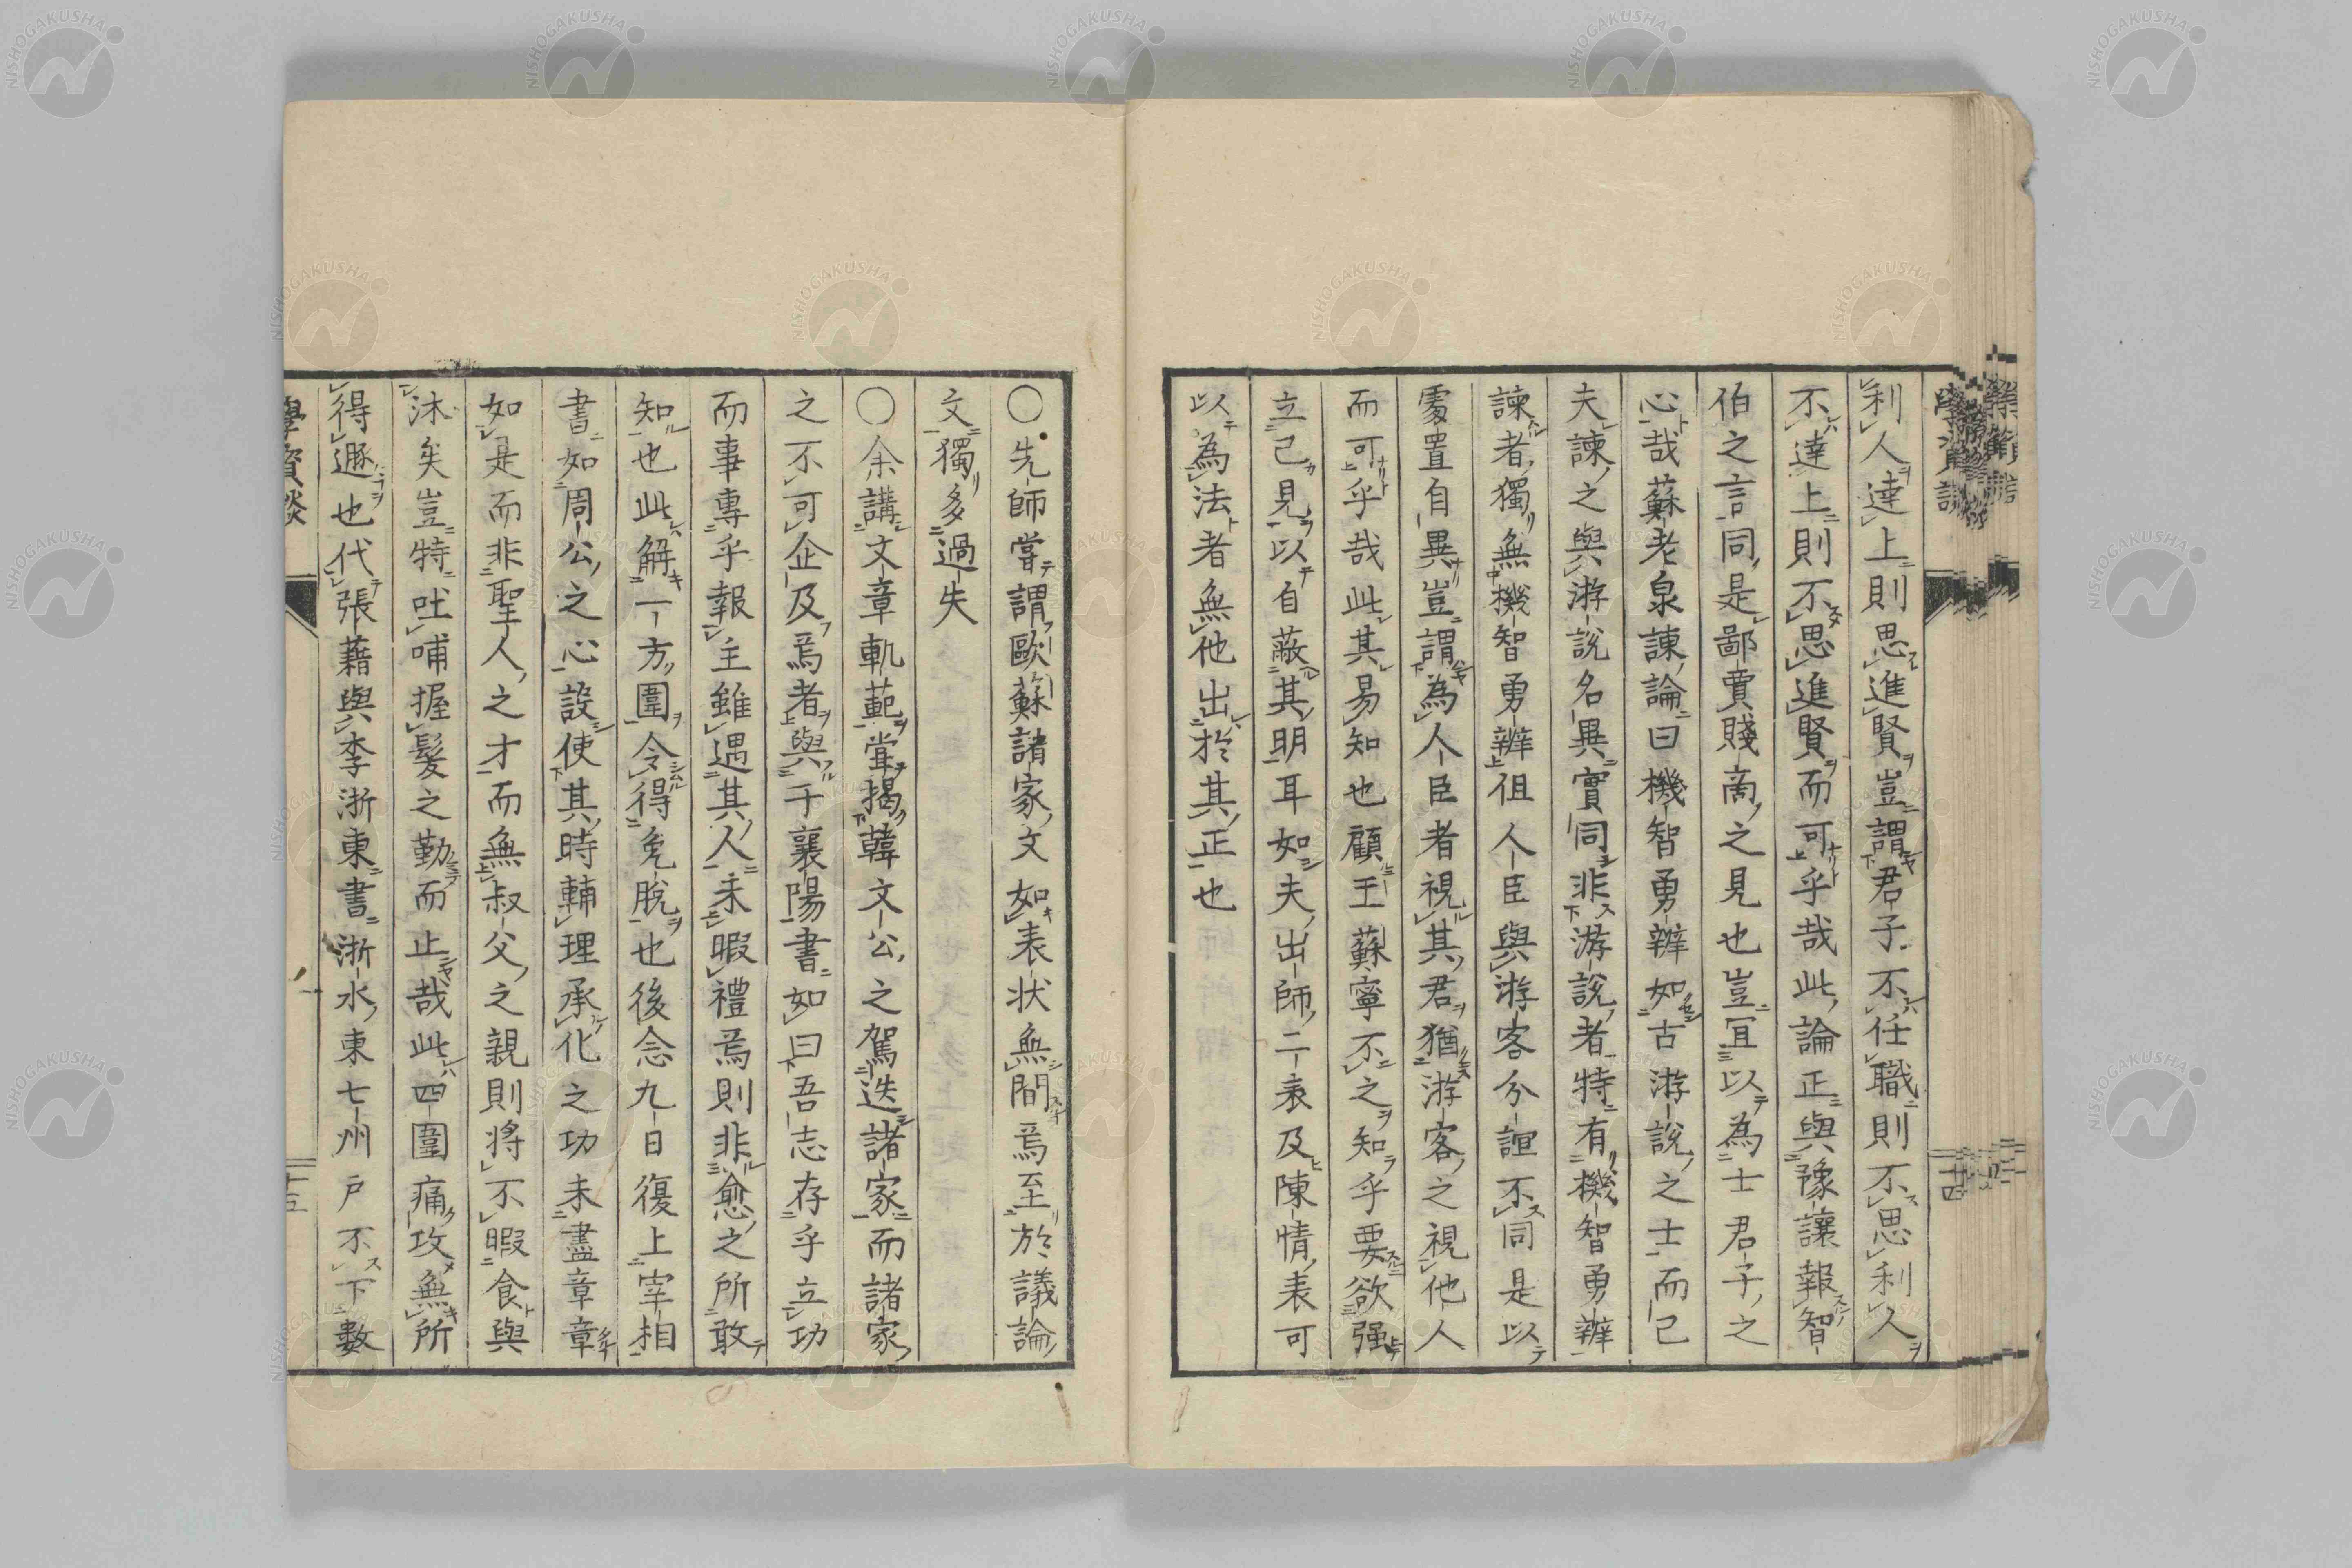 利人達上則思進賢豈謂君子不任職則不思利人
不達上則不思進賢而可乎哉此論正與豫讓報智
伯之言同是鄙賣賤商之見也豈冝以為士君子之
心哉蘇老泉諌論曰機智勇辨如古游說之士而已
夫諌之與游說名異實同非游說者特有機智勇辨
諌者獨無機智勇辨但人臣與游客分誼不同是以
處置自異豈謂為人臣者視其君猶游客之視他人
而可乎哉此其易知也顧王蘇寧不之知乎要欲强
立己見以自蔽其明耳如夫出師二表及陳情表可
以為法者無他出於其正也
〇先師嘗謂歐蘇諸家文如表狀無間焉至於議論
文獨多過失
〇余講文章軌範嘗揭韓文公之駕迭諸家而諸家
之不可企及焉者與于襄陽書如曰吾志存乎立功
而事專乎報主雖遇其人未暇禮焉則非愈之所敢
知也此解一方圍令得免脫也後念九日復上宰相
書如周公之心設使其時輔理承化之功未盡章章
如是而非聖人之才而無叔父之親則將不暇食與
沐矣豈特吐哺握髮之勤而止哉此四圍痛攻無所
得遯也代張藉與李浙東書浙水東七州戸不下數
學資談
十五